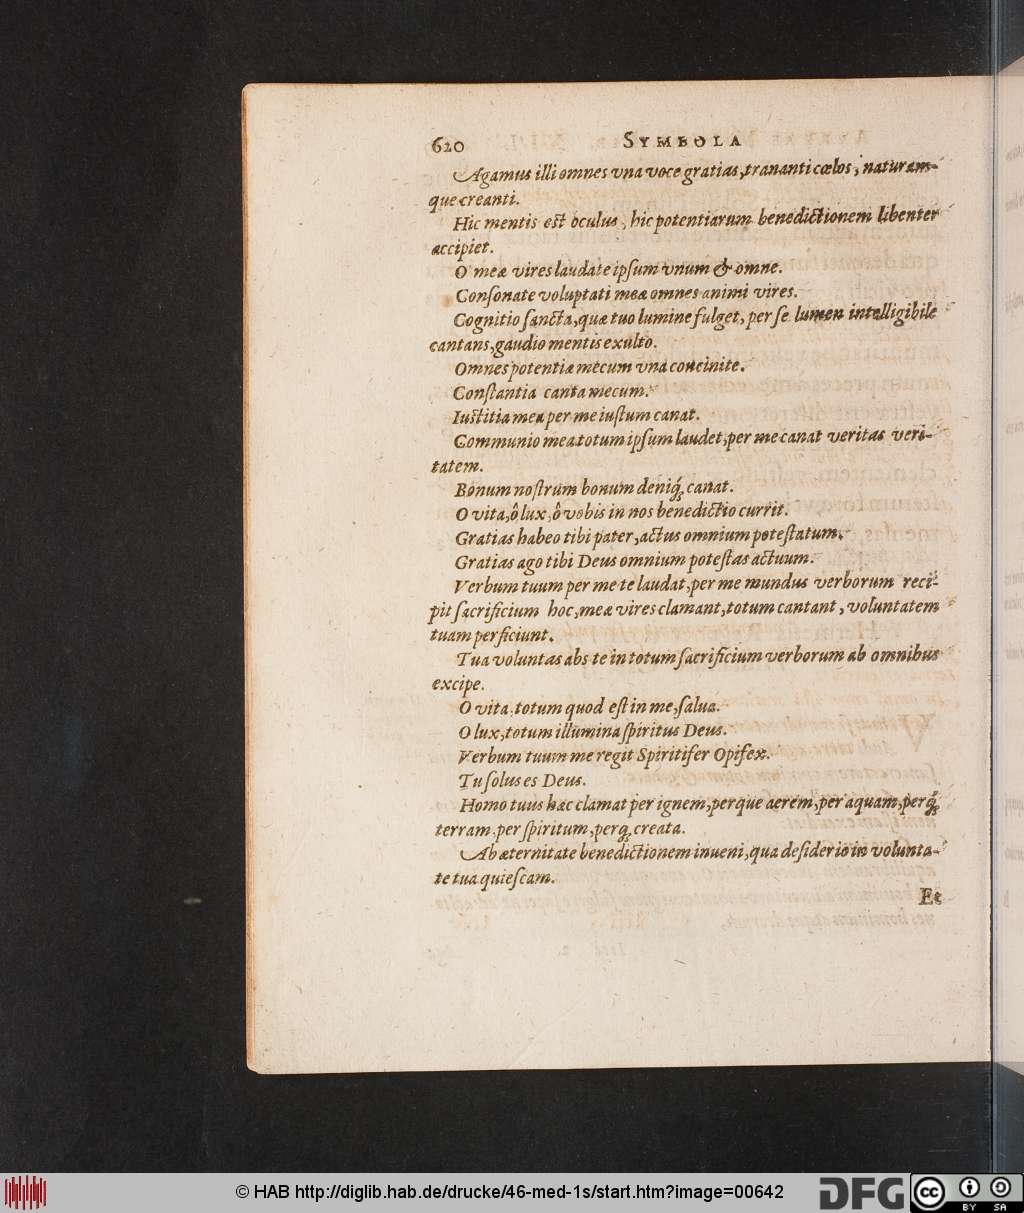 620 SYMBOLA
Agamus illi omnes vna voce gratias, trananti cœlos, naturam-
que creanti.
Hic mentis est oculus, hic potentiarum benedictionem libenter
accipiet.
O meæ vires laudate ipſum vnum & omne.
Conſonate voluptati meæ omnes animi vires.
Cognitio ſancta, quæ tuo lumine fulget, per ſe lumen intelligibile
cantans, gaudio mentis exulto.
Omnes potentiæ mecum vna concinite.
Conſtantia canta mecum.
Iustitia mea per me iuſtum canat.
Communio mea totum ipſum laudet, per me canat veritas veri-
tatem.
Bonum noſtrum bonum deniq́; canat.
O vita, ô lux, ô vobis in nos benedictio currit.
Gratias habeo tibi pater, actus omnium poteſtatum.
Gratias ago tibi Deus omnium poteſtas actuum.
Verbum tuum per me te laudat, per me mundus verborum reci-
pit ſacrificium hoc, meæ vires clamant, totum cantant, voluntatem
tuam perficiunt.
Tua voluntas abs te in totum ſacrificium verborum ab omnibus
excipe.
O vita, totum quod eſt in me, ſalua.
O lux, totum illumina ſpiritus Deus.
Verbum tuum me regit Spiritifer Opifex.
Tu ſolus es Deus.
Homo tuus hæc clamat per ignem, perque aerem, per aquam, perq́;
terram, per ſpiritum, perq́; creata.
Ab æternitate benedictionem inueni, qua deſiderio in volunta-
te tua quieſcam.
Et
© HAB http://diglib.hab.de/drucke/46-med-1s/start.htm?image=00642 DFG cc BY SA